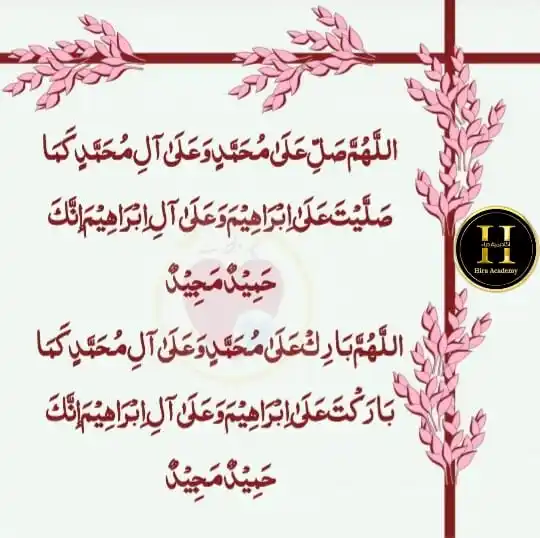 اللَّهُمَّ صَلِّ عَلَىٰ مُحَمَّدٍ وَعَلَىٰ آلِ مُحَمَّدٍ كَمَا
صَلَّيْتَ عَلَىٰ اِبْرَاهِيْمَ وَعَلَىٰ آلِ اِبْرَاهِيْمَ إِنَّكَ
حَمِيْدٌ مَجِيْدٌ
اللَّهُمَّ بَارِكْ عَلَىٰ مُحَمَّدٍ وَعَلَىٰ آلِ مُحَمَّدٍ كَمَا
بَارَكْتَ عَلَىٰ اِبْرَاهِيْمَ وَعَلَىٰ آلِ اِبْرَاهِيْمَ إِنَّكَ
حَمِيْدٌ مَجِيْدٌ
H
Hira Academy